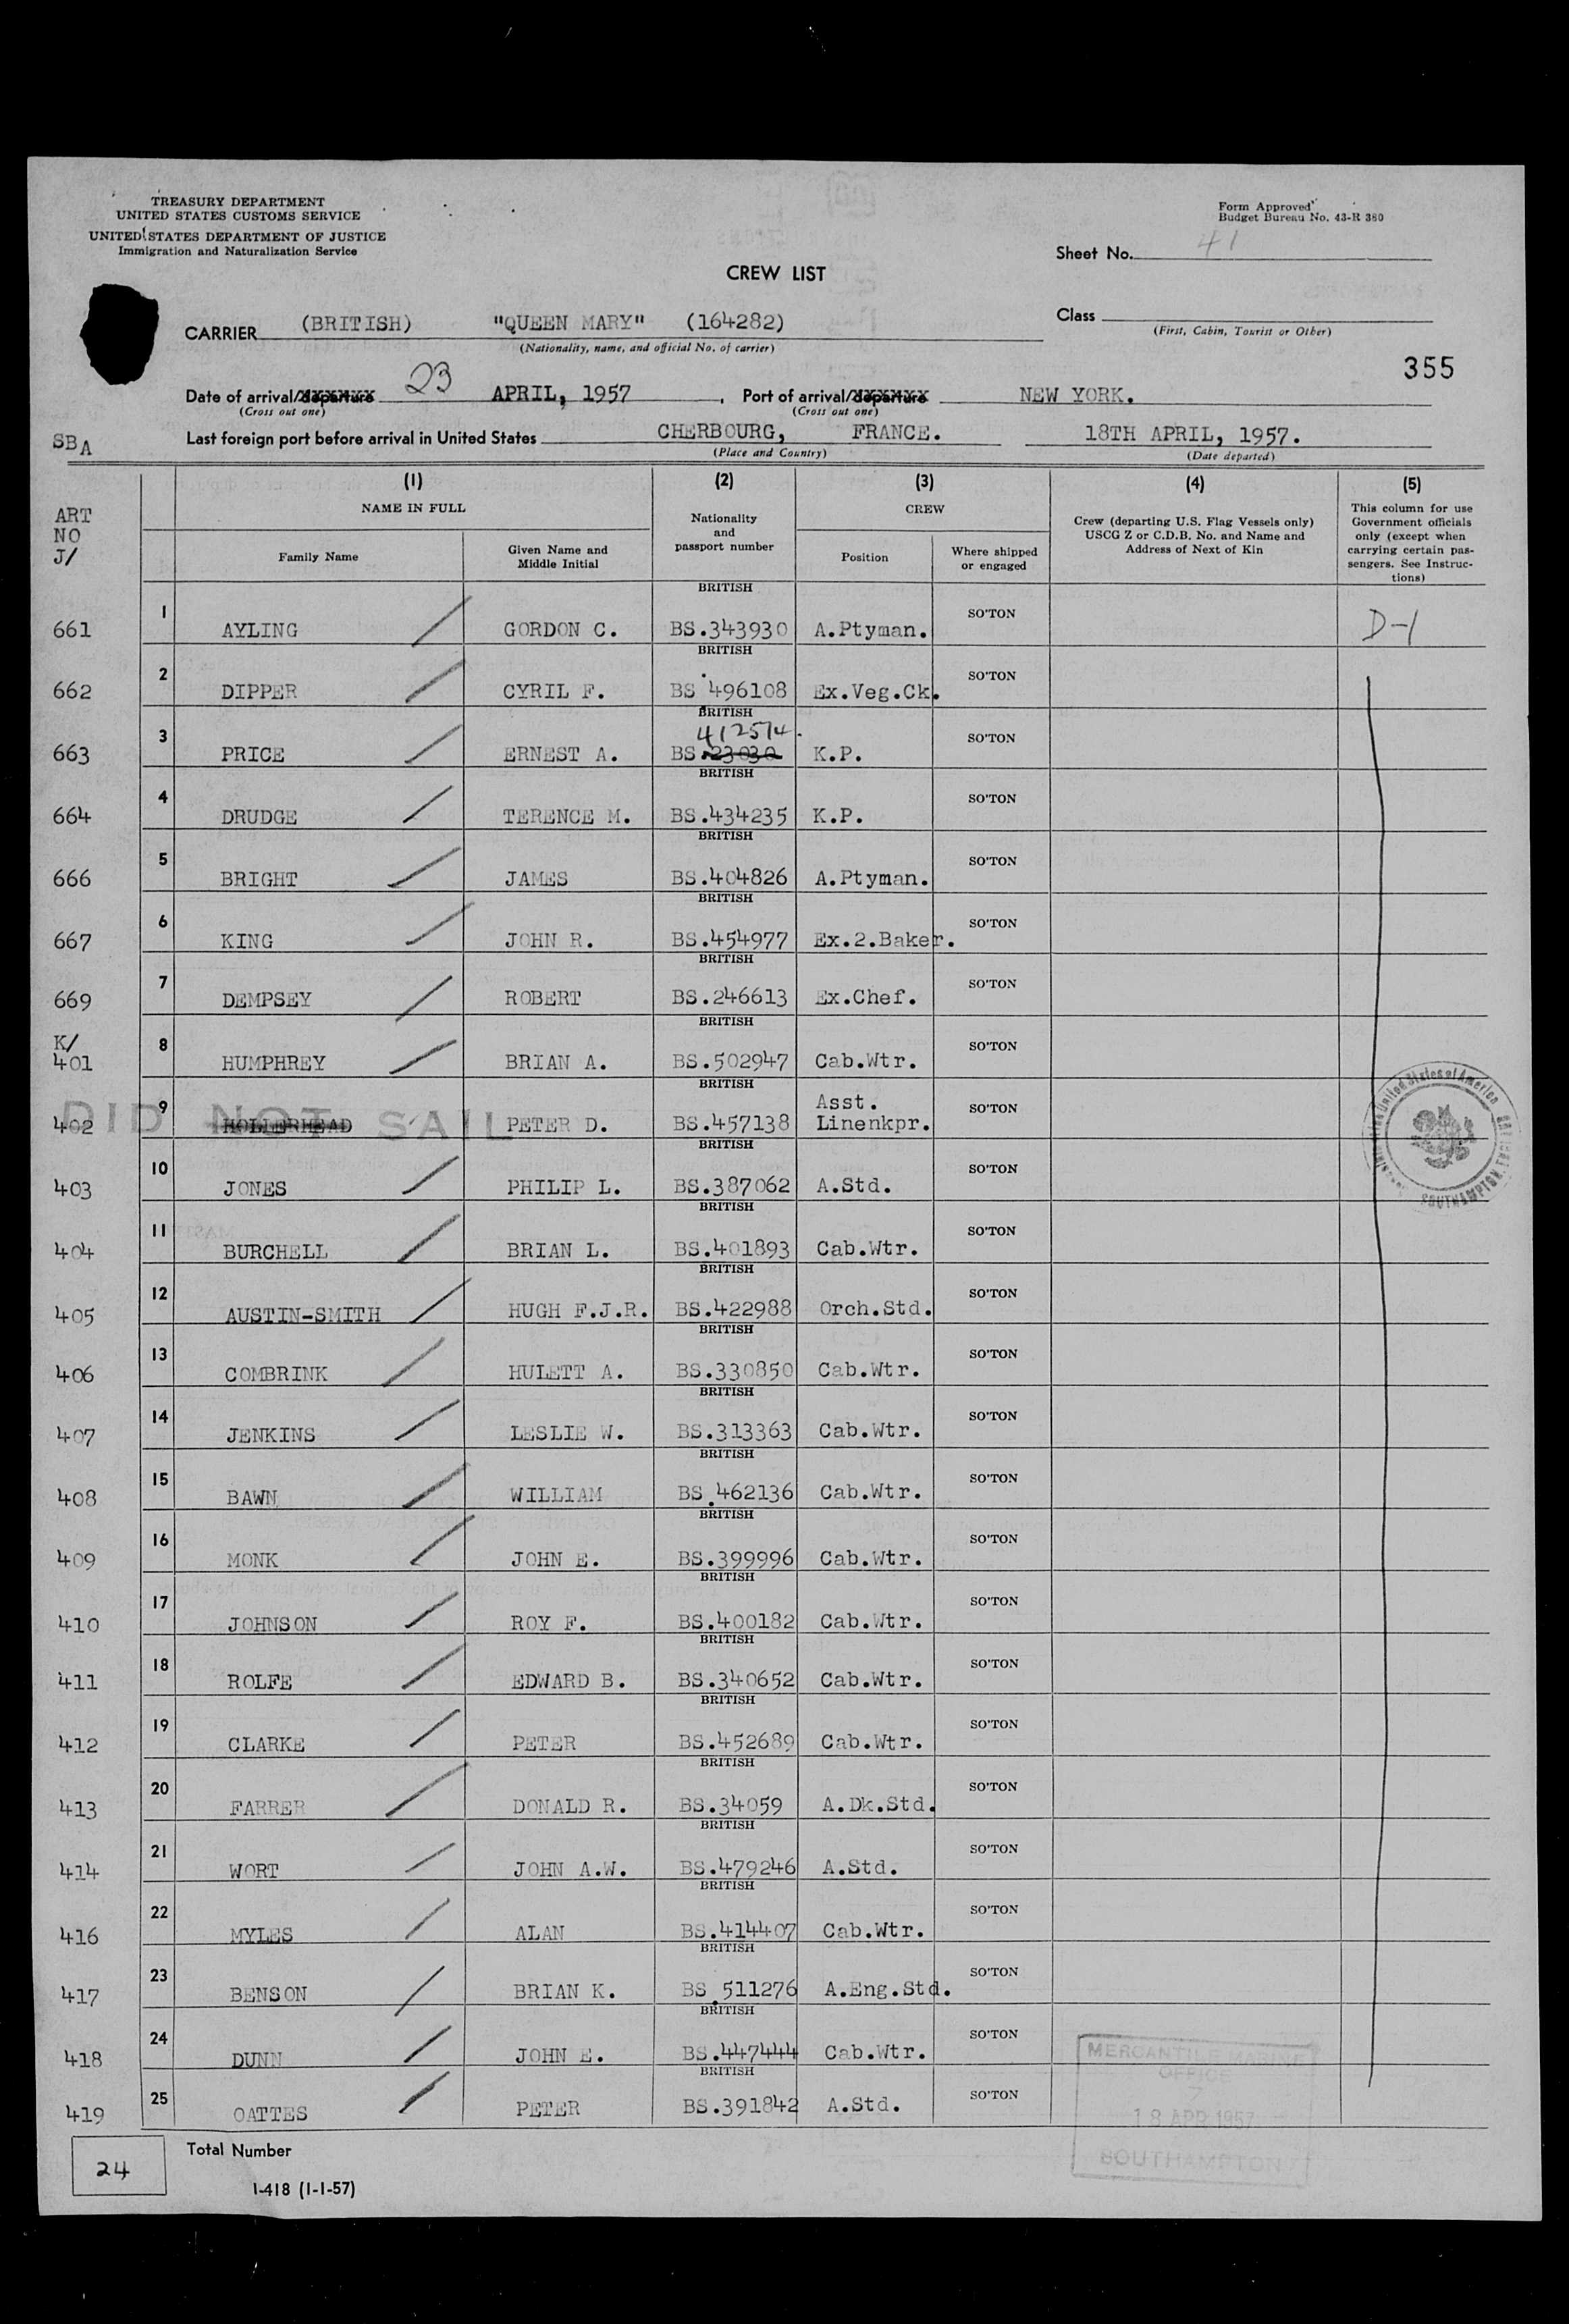 TREASURY DEPARTMENT
UNITED STATES CUSTOMS SERVICE
UNITED STATES DEPARTMENT OF JUSTICE
Immigration and Naturalization Service
Form Approved
Budget Bureau No. 43-R 380
Sheet No. 41
CREW LIST
CARRIER (BRITISH) "QUEEN MARY" (164282)
(Nationality, name, and official No. of carrier)
Class
(First, Cabin, Tourist or Other)
355
Date of arrival/departure 23 APRIL, 1957. Port of arrival/departure NEW YORK.
(Cross out one) (Cross out one)
SBA
Last foreign port before arrival in United States CHERBOURG, FRANCE. 18TH APRIL, 1957.
(Place and Country) (Date departed)
ART
NO
J/
(1) (2) (3) (4) (5)
NAME IN FULL
Family Name
Given Name and Middle Initial
Nationality and passport number
CREW
Position
Where shipped or engaged
Crew (departing U.S. Flag Vessels only)
USCG Z or C.D.B. No. and Name and
Address of Next of Kin
This column for use
Government officials
only (except when
carrying certain pas-
sengers. See Instruc-
tions)
661 1 AYLING GORDON C. BRITISH BS.343930 A.Ptyman. SO'TON D-1
662 2 DIPPER CYRIL F. BRITISH BS 496108 Ex.Veg.Ck. SO'TON
663 3 PRICE ERNEST A. BRITISH 412514. BS.23030 K.P. SO'TON
664 4 DRUDGE TERENCE M. BRITISH BS.434235 K.P. SO'TON
666 5 BRIGHT JAMES BRITISH BS.404826 A.Ptyman. SO'TON
667 6 KING JOHN R. BRITISH BS.454977 Ex.2.Baker. SO'TON
669 7 DEMPSEY ROBERT BRITISH BS.246613 Ex.Chef. SO'TON
K/
401 8 HUMPHREY BRIAN A. BRITISH BS.502947 Cab.Wtr. SO'TON
DID NOT SAIL
402 9 HOLLERHEAD PETER D. BRITISH BS.457138 Asst. Linenkpr. SO'TON
403 10 JONES PHILIP L. BRITISH BS.387062 A.Std. SO'TON
404 11 BURCHELL BRIAN L. BRITISH BS.401893 Cab.Wtr. SO'TON
405 12 AUSTIN-SMITH HUGH F.J.R. BRITISH BS.422988 Orch.Std. SO'TON
406 13 COMBRINK HULETT A. BRITISH BS.330850 Cab.Wtr. SO'TON
407 14 JENKINS LESLIE W. BRITISH BS.313363 Cab.Wtr. SO'TON
408 15 BAWN WILLIAM BRITISH BS.462136 Cab.Wtr. SO'TON
409 16 MONK JOHN E. BRITISH BS.399996 Cab.Wtr. SO'TON
410 17 JOHNSON ROY F. BRITISH BS.400182 Cab.Wtr. SO'TON
411 18 ROLFE EDWARD B. BRITISH BS.340652 Cab.Wtr. SO'TON
412 19 CLARKE PETER BRITISH BS.452689 Cab.Wtr. SO'TON
413 20 FARRER DONALD R. BRITISH BS.34059 A.Dk.Std. SO'TON
414 21 WORT JOHN A.W. BRITISH BS.479246 A.Std. SO'TON
416 22 MYLES ALAN BRITISH BS.414407 Cab.Wtr. SO'TON
417 23 BENSON BRIAN K. BRITISH BS.511276 A.Eng.Std. SO'TON
418 24 DUNN JOHN E. BRITISH BS.447444 Cab.Wtr. SO'TON
419 25 OATTES PETER BRITISH BS.391842 A.Std. SO'TON
United States of America
SOUTHAMPTON
MERCANTILE MARINE
OFFICE
7
18 APR 1957
SOUTHAMPTON
24
Total Number
I-418 (1-1-57)